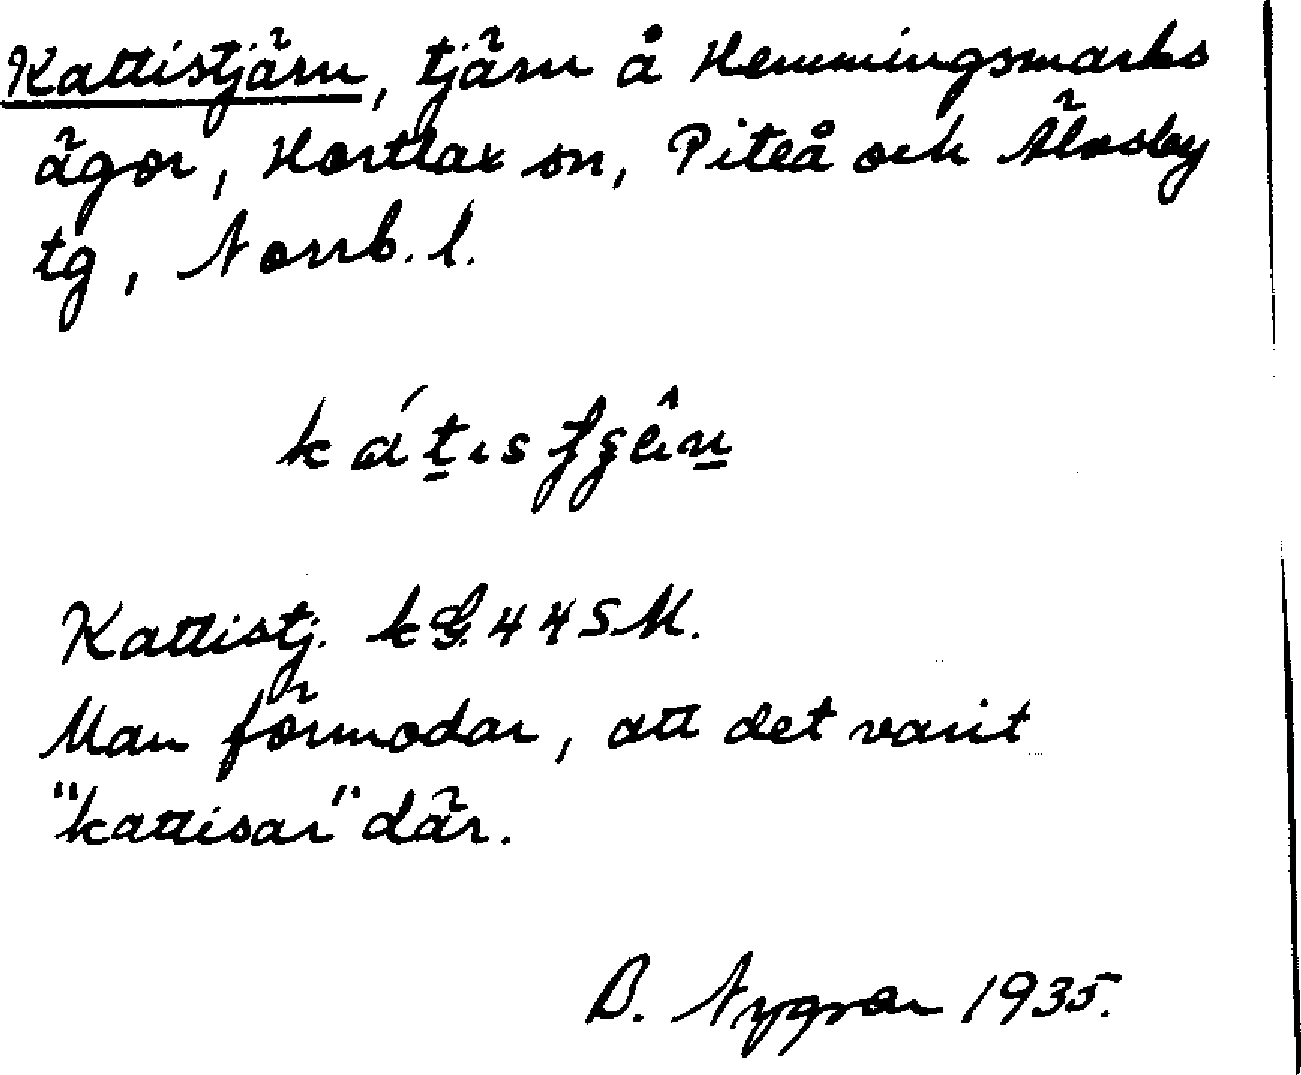 Kattistjärn, tjärn å Hemmingsmarks
ägor, Hortlax sn, Piteå och Älvsby
tg, Norrb. l.
Kattistj. kG. 44SM.
Man förmodar, att det varit
"kattisar" där.
B. Nygren 1935.